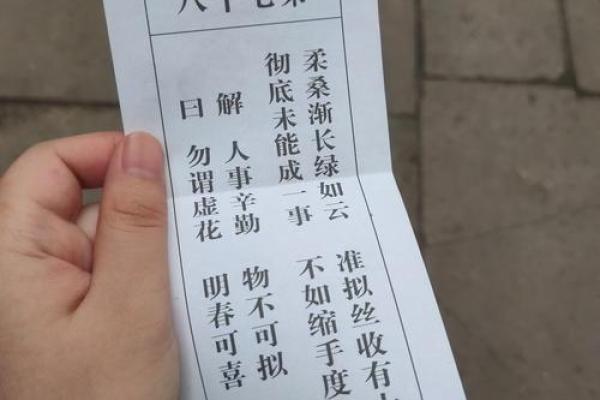 第七十八
柔桑渐长绿如云 准拟丝收有
彻底未能成一事 不如缩手度
解 人事辛勤 物不可拟
曰 勿谓虚花 明春可喜